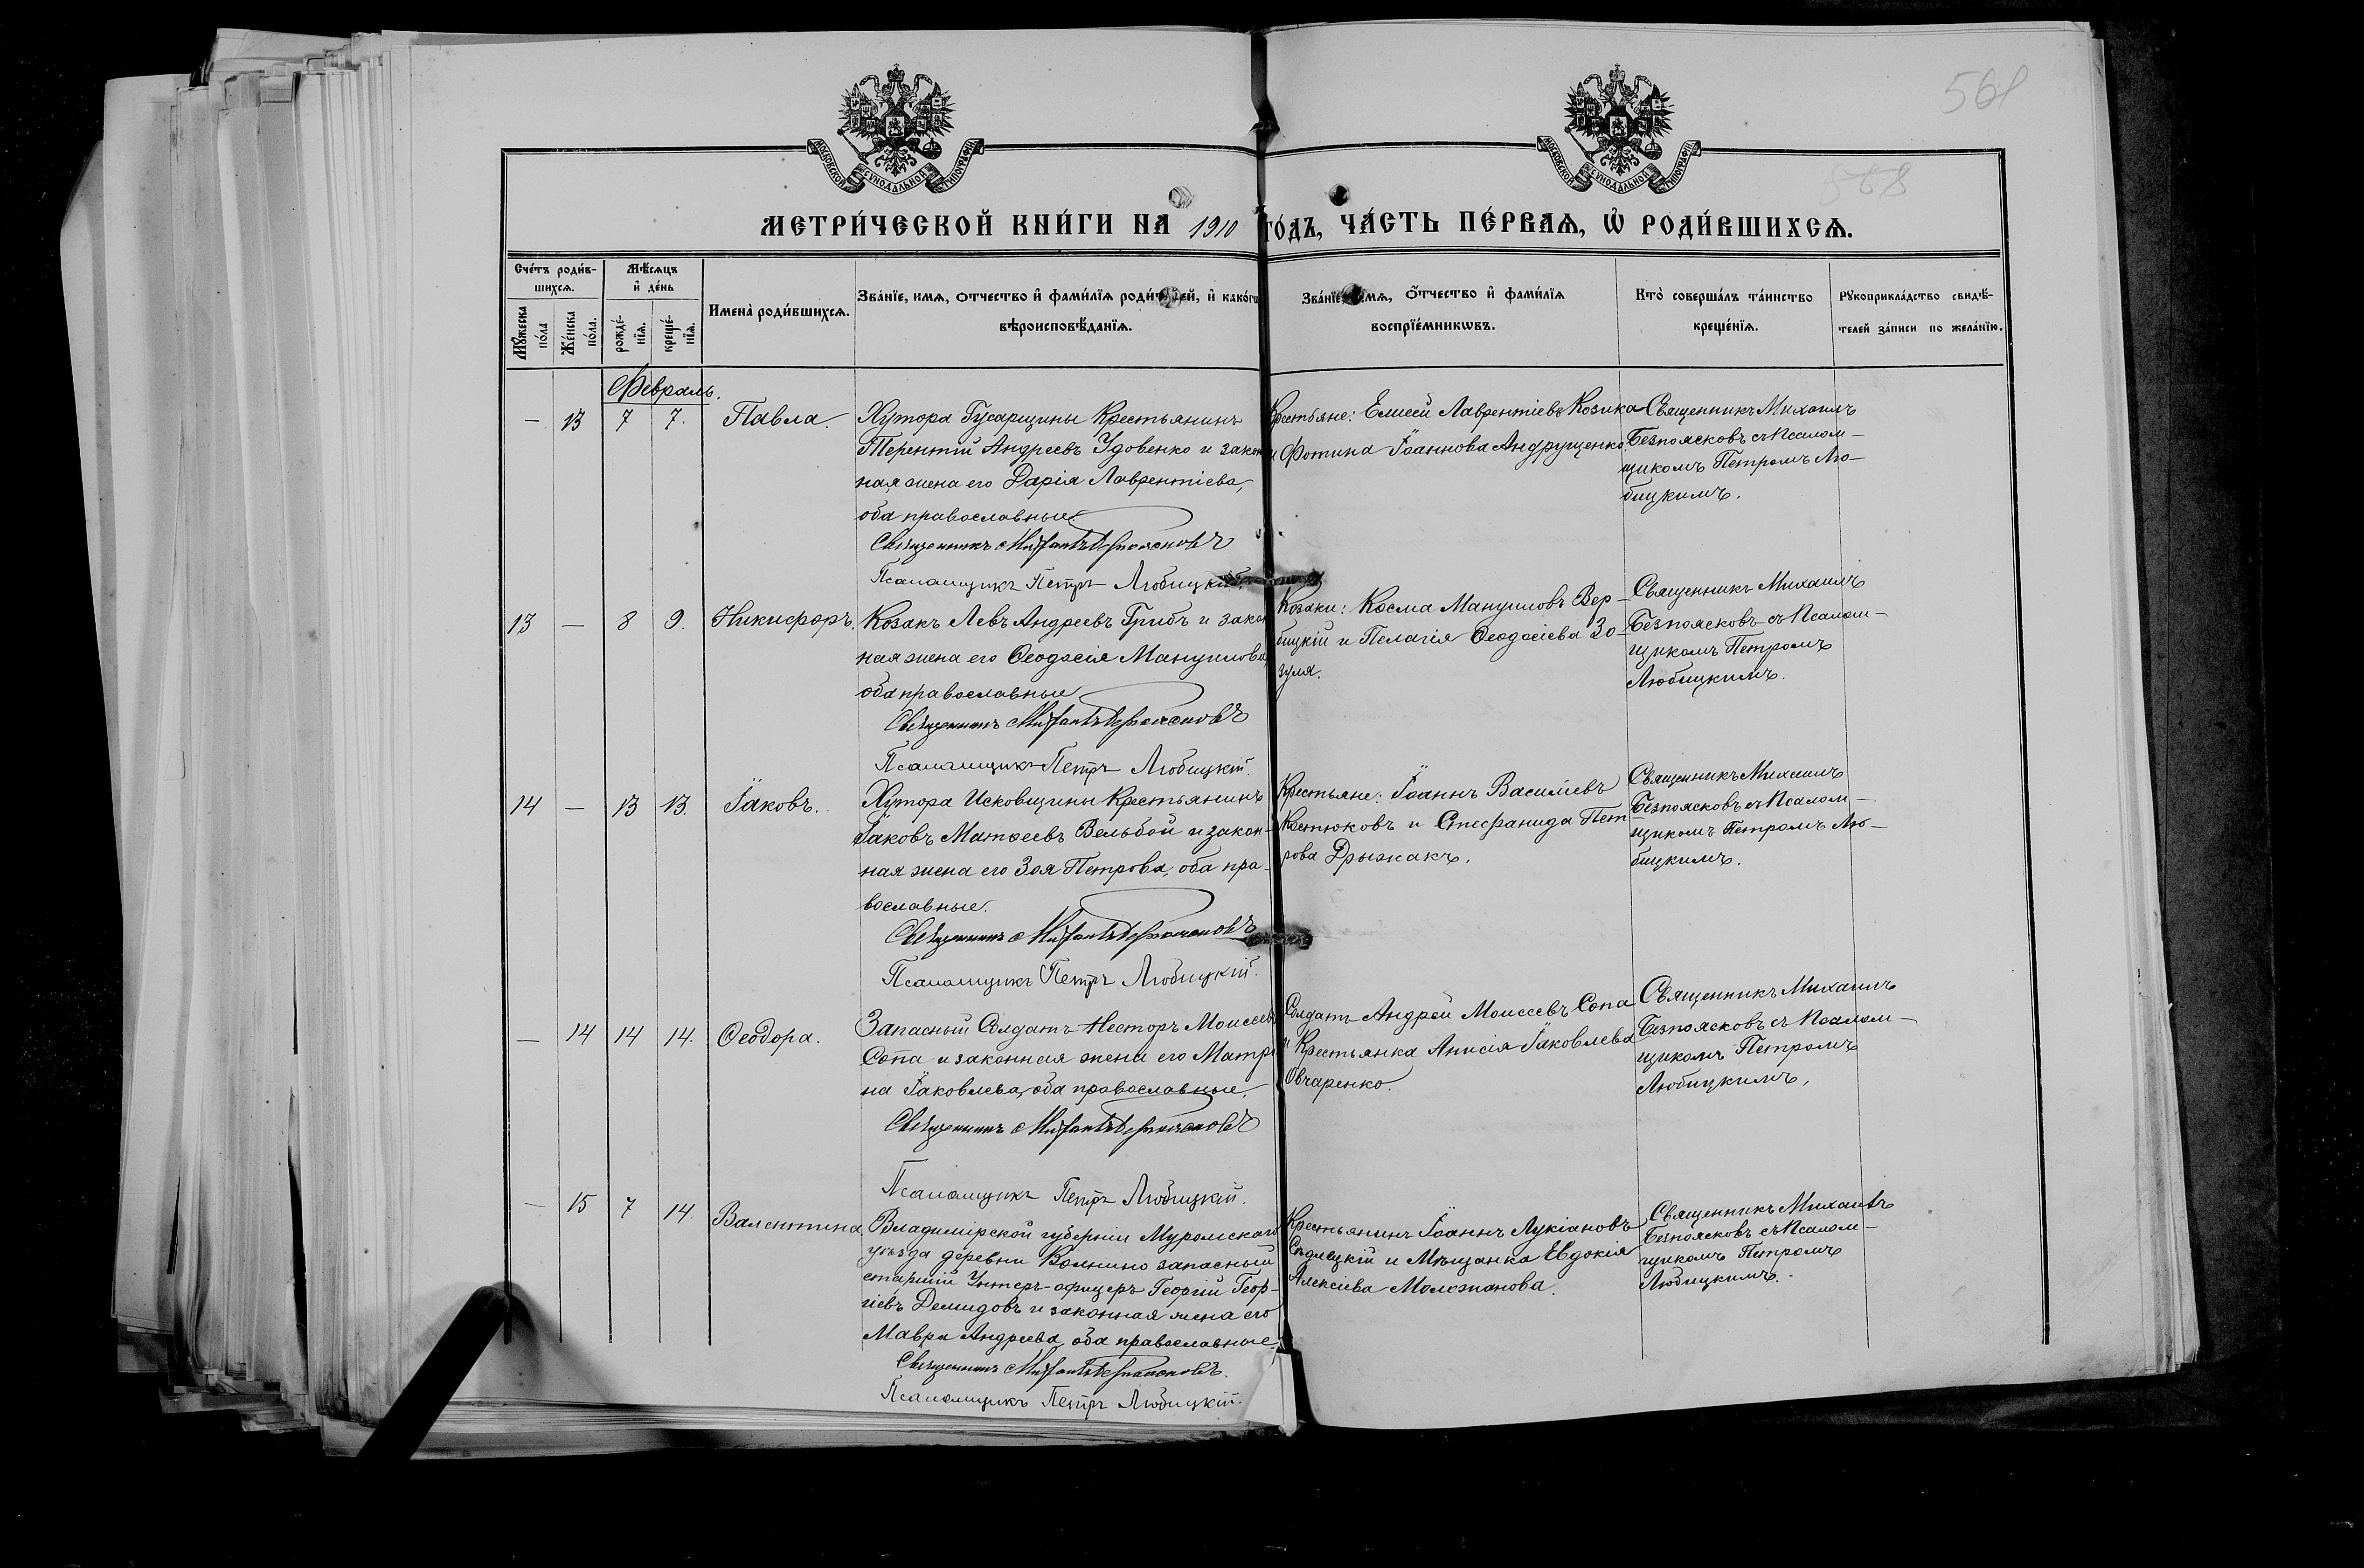 561
568
МОСКОВСКОЙ СУНОДАЛЬНОЙ ТИПОГРАФІИ
МОСКОВСКОЙ СУНОДАЛЬНОЙ ТИПОГРАФІИ
МЕТРИ́ЧЕСКОЙ КНИ́ГИ НА 1910 ГО́ДЪ, ЧА́СТЬ ПЕ́РВАѦ, Ѡ҆ РОДИ́ВШИХСѦ.
Сче́тъ роди́в-
шихсѧ.
Мꙋ́жеска
по́ла
Же́нска
по́ла.
Мѣ́сѧцъ
и҆ де́нь
рожде́-
нїѧ.
креще́-
нїѧ.
Имена̀ роди́вшихсѧ.
Зва́нїе, имѧ, отчество и҆ фами́лїѧ роди́телей, и҆ како́гѡ
вѣроисповѣ́данїѧ.
Зва́нїе, имѧ, о҆́тчество и҆ фами́лїѧ
воспрїе́мникѡвъ.
Кто̀ соверша́лъ та́инство
креще́нїѧ.
Рꙋкоприкла́дство свидѣ́-
телей за́писи по жела́нїю.
Февраль.
— 13 7 7. Павла.
Хутора Гусарщины Крестьянинъ
Терентій Андреевъ Удовенко и закон
ная жена его Дарія Лаврентіева,
оба православные.
Священникъ Михаилъ Безпоясковъ
Псаломщикъ Петръ Любицкій.
Крестьяне: Елисей Лаврентіевъ Козика
и Фотина Іоаннова Андрущенко.
Священникъ Михаилъ
Безпоясковъ съ Псалом-
щикомъ Петромъ Лю-
бицкимъ.
13 — 8 9. Никифоръ.
Козакъ Левъ Андреевъ Грибъ и закон
ная жена его Ѳеодосія Мануилова,
оба православные
Священникъ Михаилъ Безпоясковъ
Псаломщикъ Петръ Любицкій.
Козаки: Косма Мануиловъ Вер-
бицкій и Пелагія Ѳеодосіева Зо-
зуля.
Священникъ Михаилъ
Безпоясковъ съ Псалом-
щикомъ Петромъ
Любицкимъ.
14 — 13 13. Іаковъ.
Хутора Исковщины Крестьянинъ
Іаковъ Матѳеевъ Вельбой и закон-
ная жена его Зоя Петрова, оба пра-
вославные.
Священникъ Михаилъ Безпоясковъ
Псаломщикъ Петръ Любицкій.
Крестьяне: Іоаннъ Василіевъ
Костюковъ и Стефанида Пет
рова Дрыжакъ.
Священникъ Михаилъ
Безпоясковъ съ Псалом-
щикомъ Петромъ Лю-
бицкимъ.
— 14 14 14. Ѳеодора.
Запасный Солдатъ Несторъ Моисеевъ
Сопа и законная жена его Матро
на Іаковлева, оба православные.
Священникъ Михаилъ Безпоясковъ
Псаломщикъ Петръ Любицкій.
Солдатъ Андрей Моисеевъ Сопа
и Крестьянка Анисія Іаковлева
Овчаренко.
Священникъ Михаилъ
Безпоясковъ съ Псалом-
щикомъ Петромъ
Любицкимъ.
— 15 7 14. Валентина.
Владимірской губерніи Муромскаго
уѣзда деревни Волнино запасный
старшій Унтеръ-офицеръ Георгій Геор-
гіевъ Демидовъ и законная жена его
Мавра Андреева, оба православные.
Священникъ Михаилъ Безпоясковъ.
Псаломщикъ Петръ Любицкій.
Крестьянинъ Іоаннъ Лукіановъ
Сѣдлецкій и Мѣщанка Евдокія
Алексіева Моложанова.
Священникъ Михаилъ
Безпоясковъ съ Псалом-
щикомъ Петромъ
Любицкимъ.